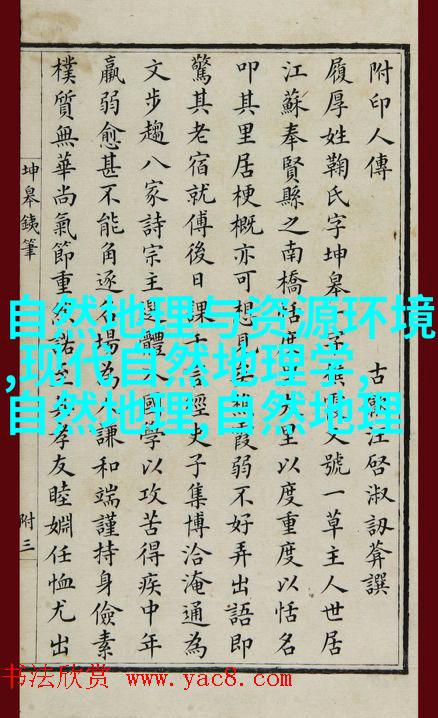 附印人傳 古江啓淑訒葊譔
履厚姓鞠氏字坤皋一字號一草主人世居
江蘇奉賢縣之南橋恬度里以度重度以恬名
叩其里居梗概亦可想見霞弱不好弄出語即
驚其老宿就傅後日課千言經史子集博洽淹通為
文步趨八家詩宗主選體入國學以攻苦得疾中年
羸弱愈甚不能角逐名場為人謙和端謹持身儉素
樸質無華尚氣節重然諾至其孝友睦婣任恤尤出
坤皋銕筆
附三
自然地理与资源环境
,现代自然地理学,
自然地理,自然地理
书法欣赏 www.yac8.com